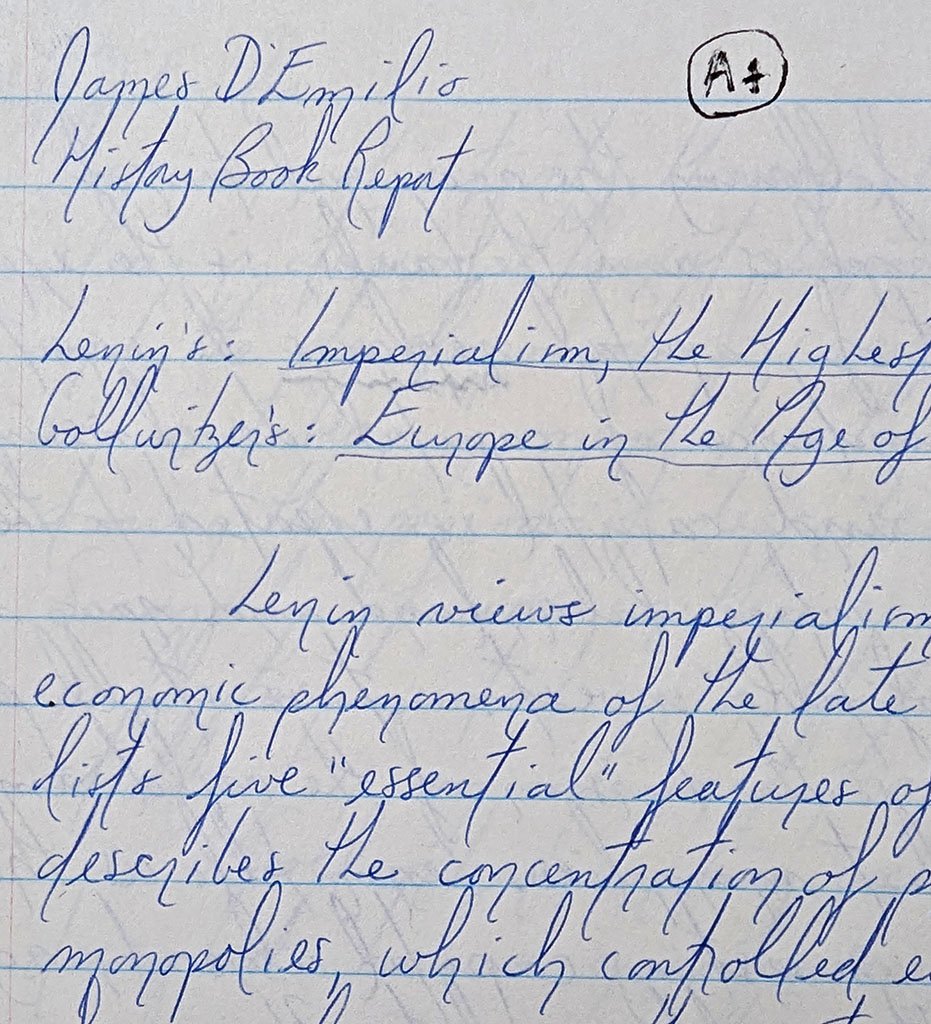 James D'Emilio
A+
History Book Report
Lenin's: Imperialism, the Highest
Gollwitzer's: Europe in the Age of
Lenin views imperialism
economic phenomena of the late
lists five "essential" features of
describes the concentration of p
monopolies, which controlled e